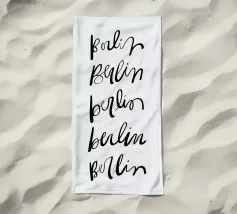 Berlin
Berlin
berlin
berlin
Berlin